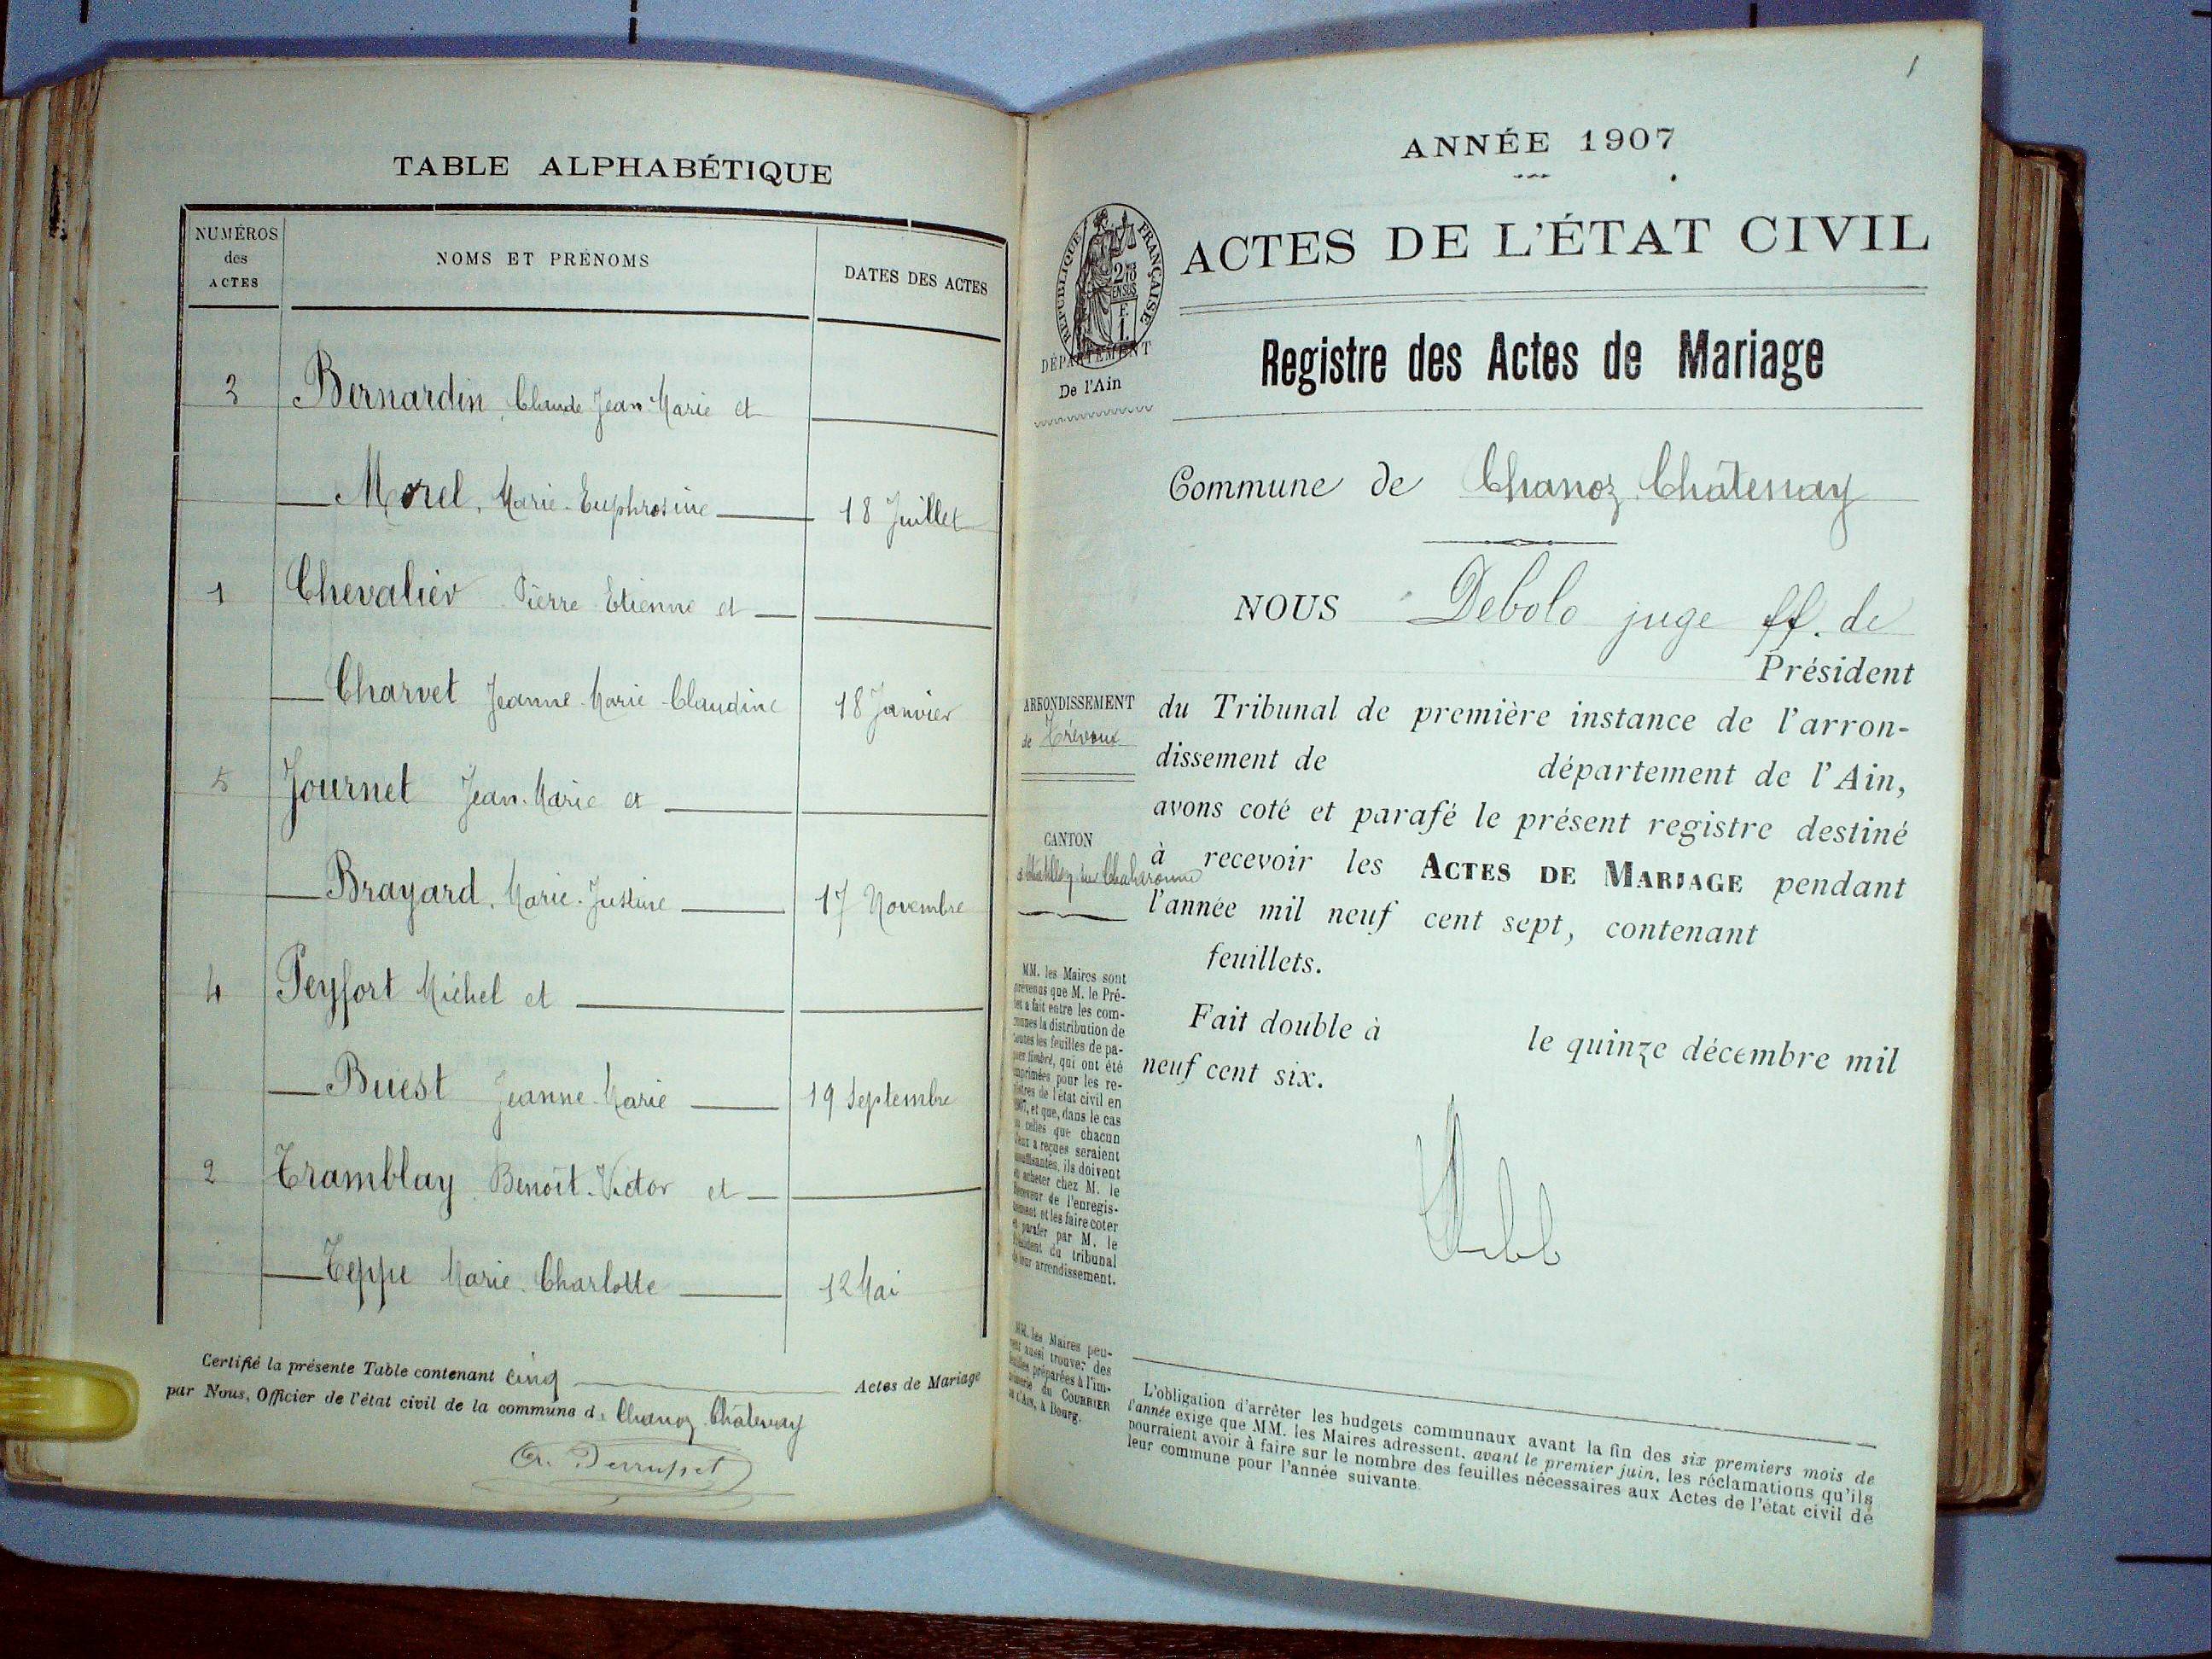 TABLE ALPHABÉTIQUE
NUMÉROS des ACTES
NOMS ET PRÉNOMS
DATES DES ACTES
3 Bernardin Claude Jean-Marie et
Morel, Marie-Euphrosine 18 Juillet
1 Chevalier Pierre Etienne et
Charvet Jeanne-Marie-Claudine 18 Janvier
5 Journet Jean-Marie et
Brayard, Marie-Justine 17 Novembre
4 Peyfort Michel et
Buest Jeanne-Marie 19 Septembre
2 Tramblay Benoît-Victor et
Teppe Marie-Charlotte 12 Mai
Certifié la présente Table contenant cinq Actes de Mariage
par Nous, Officier de l'état civil de la commune d. Chanoz-Châtenay
1
ANNÉE 1907
RÉPUBLIQUE FRANÇAISE
ACTES DE L'ÉTAT CIVIL
DÉPARTEMENT
De l'Ain
Registre des Actes de Mariage
Commune de Chanoz Châtenay
NOUS Debolo juge ff. de
Président
ARRONDISSEMENT
de Trévoux
du Tribunal de première instance de l'arron-
dissement de département de l'Ain,
avons coté et parafé le présent registre destiné
CANTON
Châtillon sur Chalaronne
à recevoir les ACTES DE MARIAGE pendant
l'année mil neuf cent sept, contenant
feuillets.
Fait double à le quinze décembre mil
neuf cent six.
MM. les Maires sont
prévenus que M. le Pré-
fet a fait entre les com-
munes la distribution de
toutes les feuilles de pa-
pier timbré, qui ont été
imprimées pour les re-
gistres de l'état civil en
1907, et que, dans le cas
où celles que chacun
d'eux a reçues seraient
insuffisantes, ils doivent
en acheter chez M. le
Receveur de l'enregis-
trement et les faire coter
et parafer par M. le
Président du tribunal
de leur arrondissement.
MM. les Maires peu-
vent aussi trouver des
feuilles préparées à l'im-
primerie du COURRIER
DE L'AIN, à Bourg.
L'obligation d'arrêter les budgets communaux avant la fin des six premiers mois de
l'année exige que MM. les Maires adressent, avant le premier juin, les réclamations qu'ils
pourraient avoir à faire sur le nombre des feuilles nécessaires aux Actes de l'état civil de
leur commune pour l'année suivante.